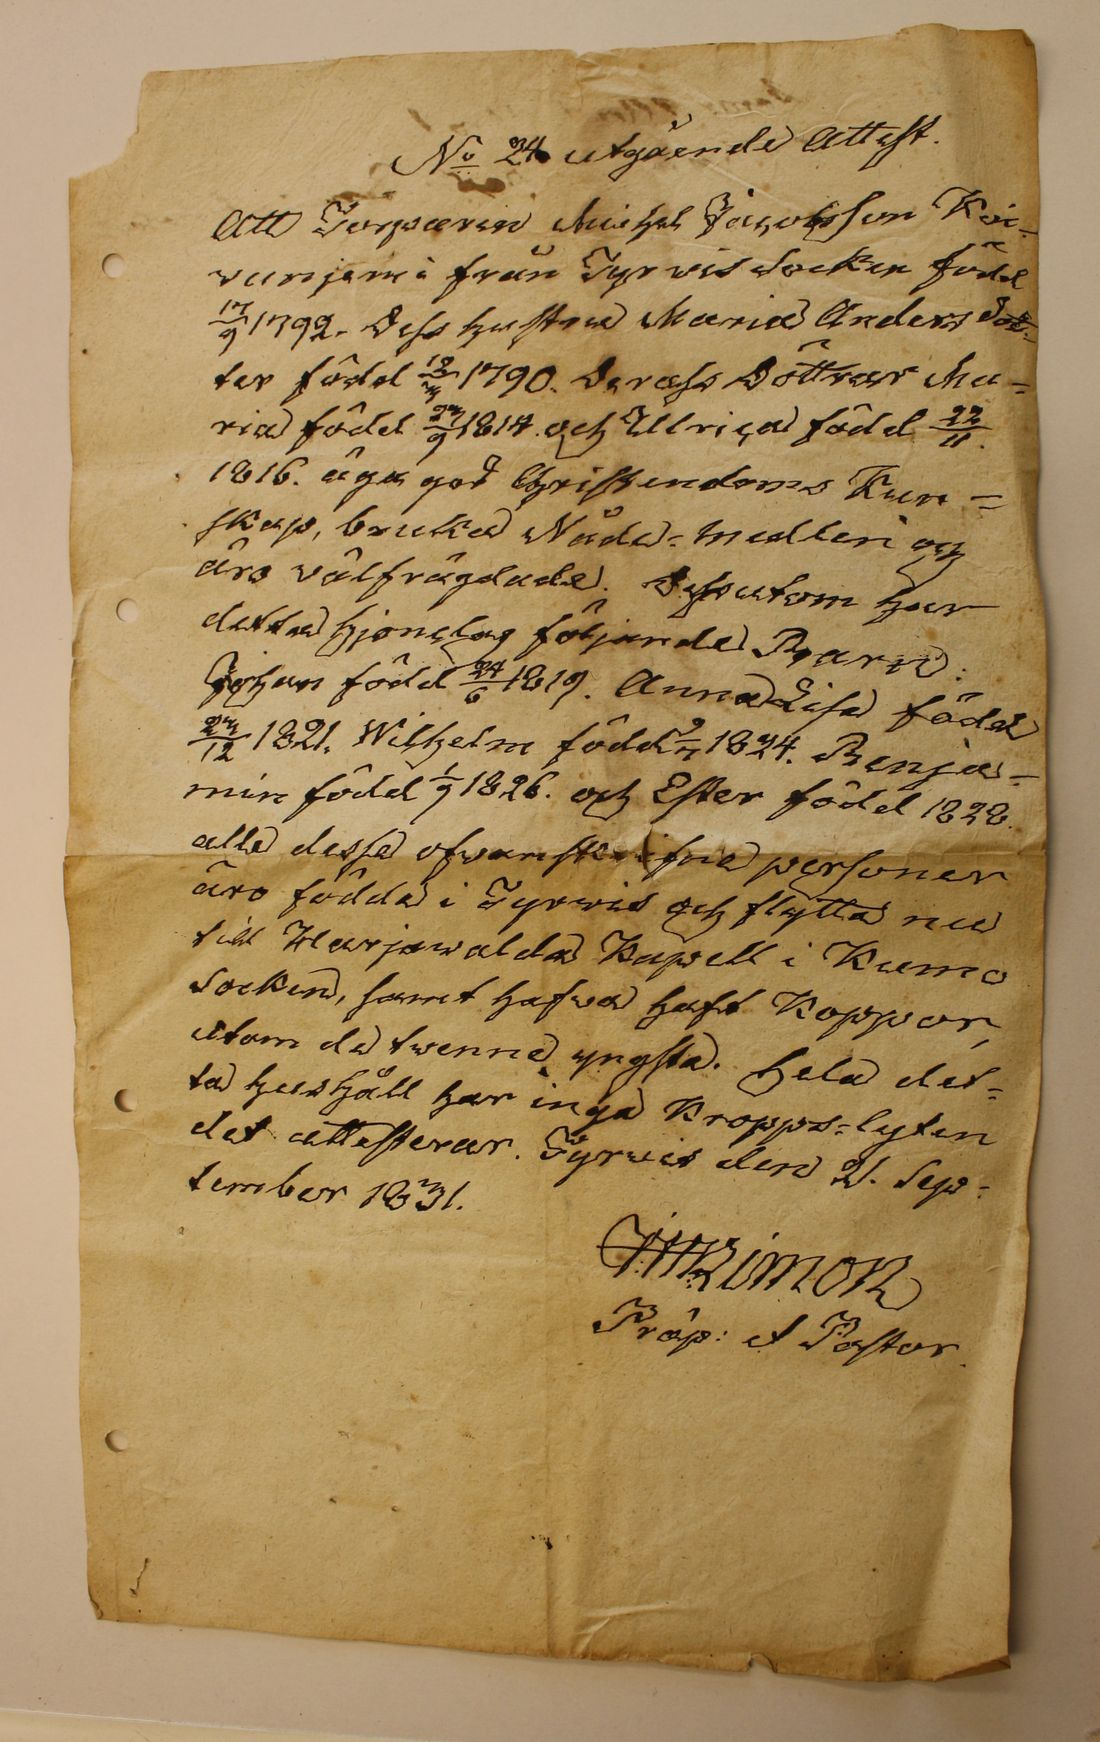 No 24 utgående Attest.
Att Torparen Michel Jacobsson Koi-
wunjemi från Tyrvis Socken född
17/9 1792. Dess hustru Maria Anders Dot-
ter född 12/3 1790. Deras Döttrar Ma-
ria född 23/9 1814. och Ullrica född 22/11.
1816. äga god Christendoms Kun-
skap, bruka Nåde-medlen och
äro välfrägdade. Dessutom har
detta hjonelag följande Barn:
Johan född 24/6 1819. Anna Lisa född
23/12 1821. Wilhelm född 1824. Benja-
min född 1/9 1826. och Ester född 1828.
alla dessa ofvanskrifne personer
äro födda i Tyrvis och flytta nu
till Harjawalda Kapell i Kumo
Socken, samt hafva haft Koppor,
utom de tvenne yngsta. Hela det-
ta hushåll har inga Kropps-lyten
det attesterar. Tyrvis den 21. Sep-
tember 1831.
Pråp: et Pastor.